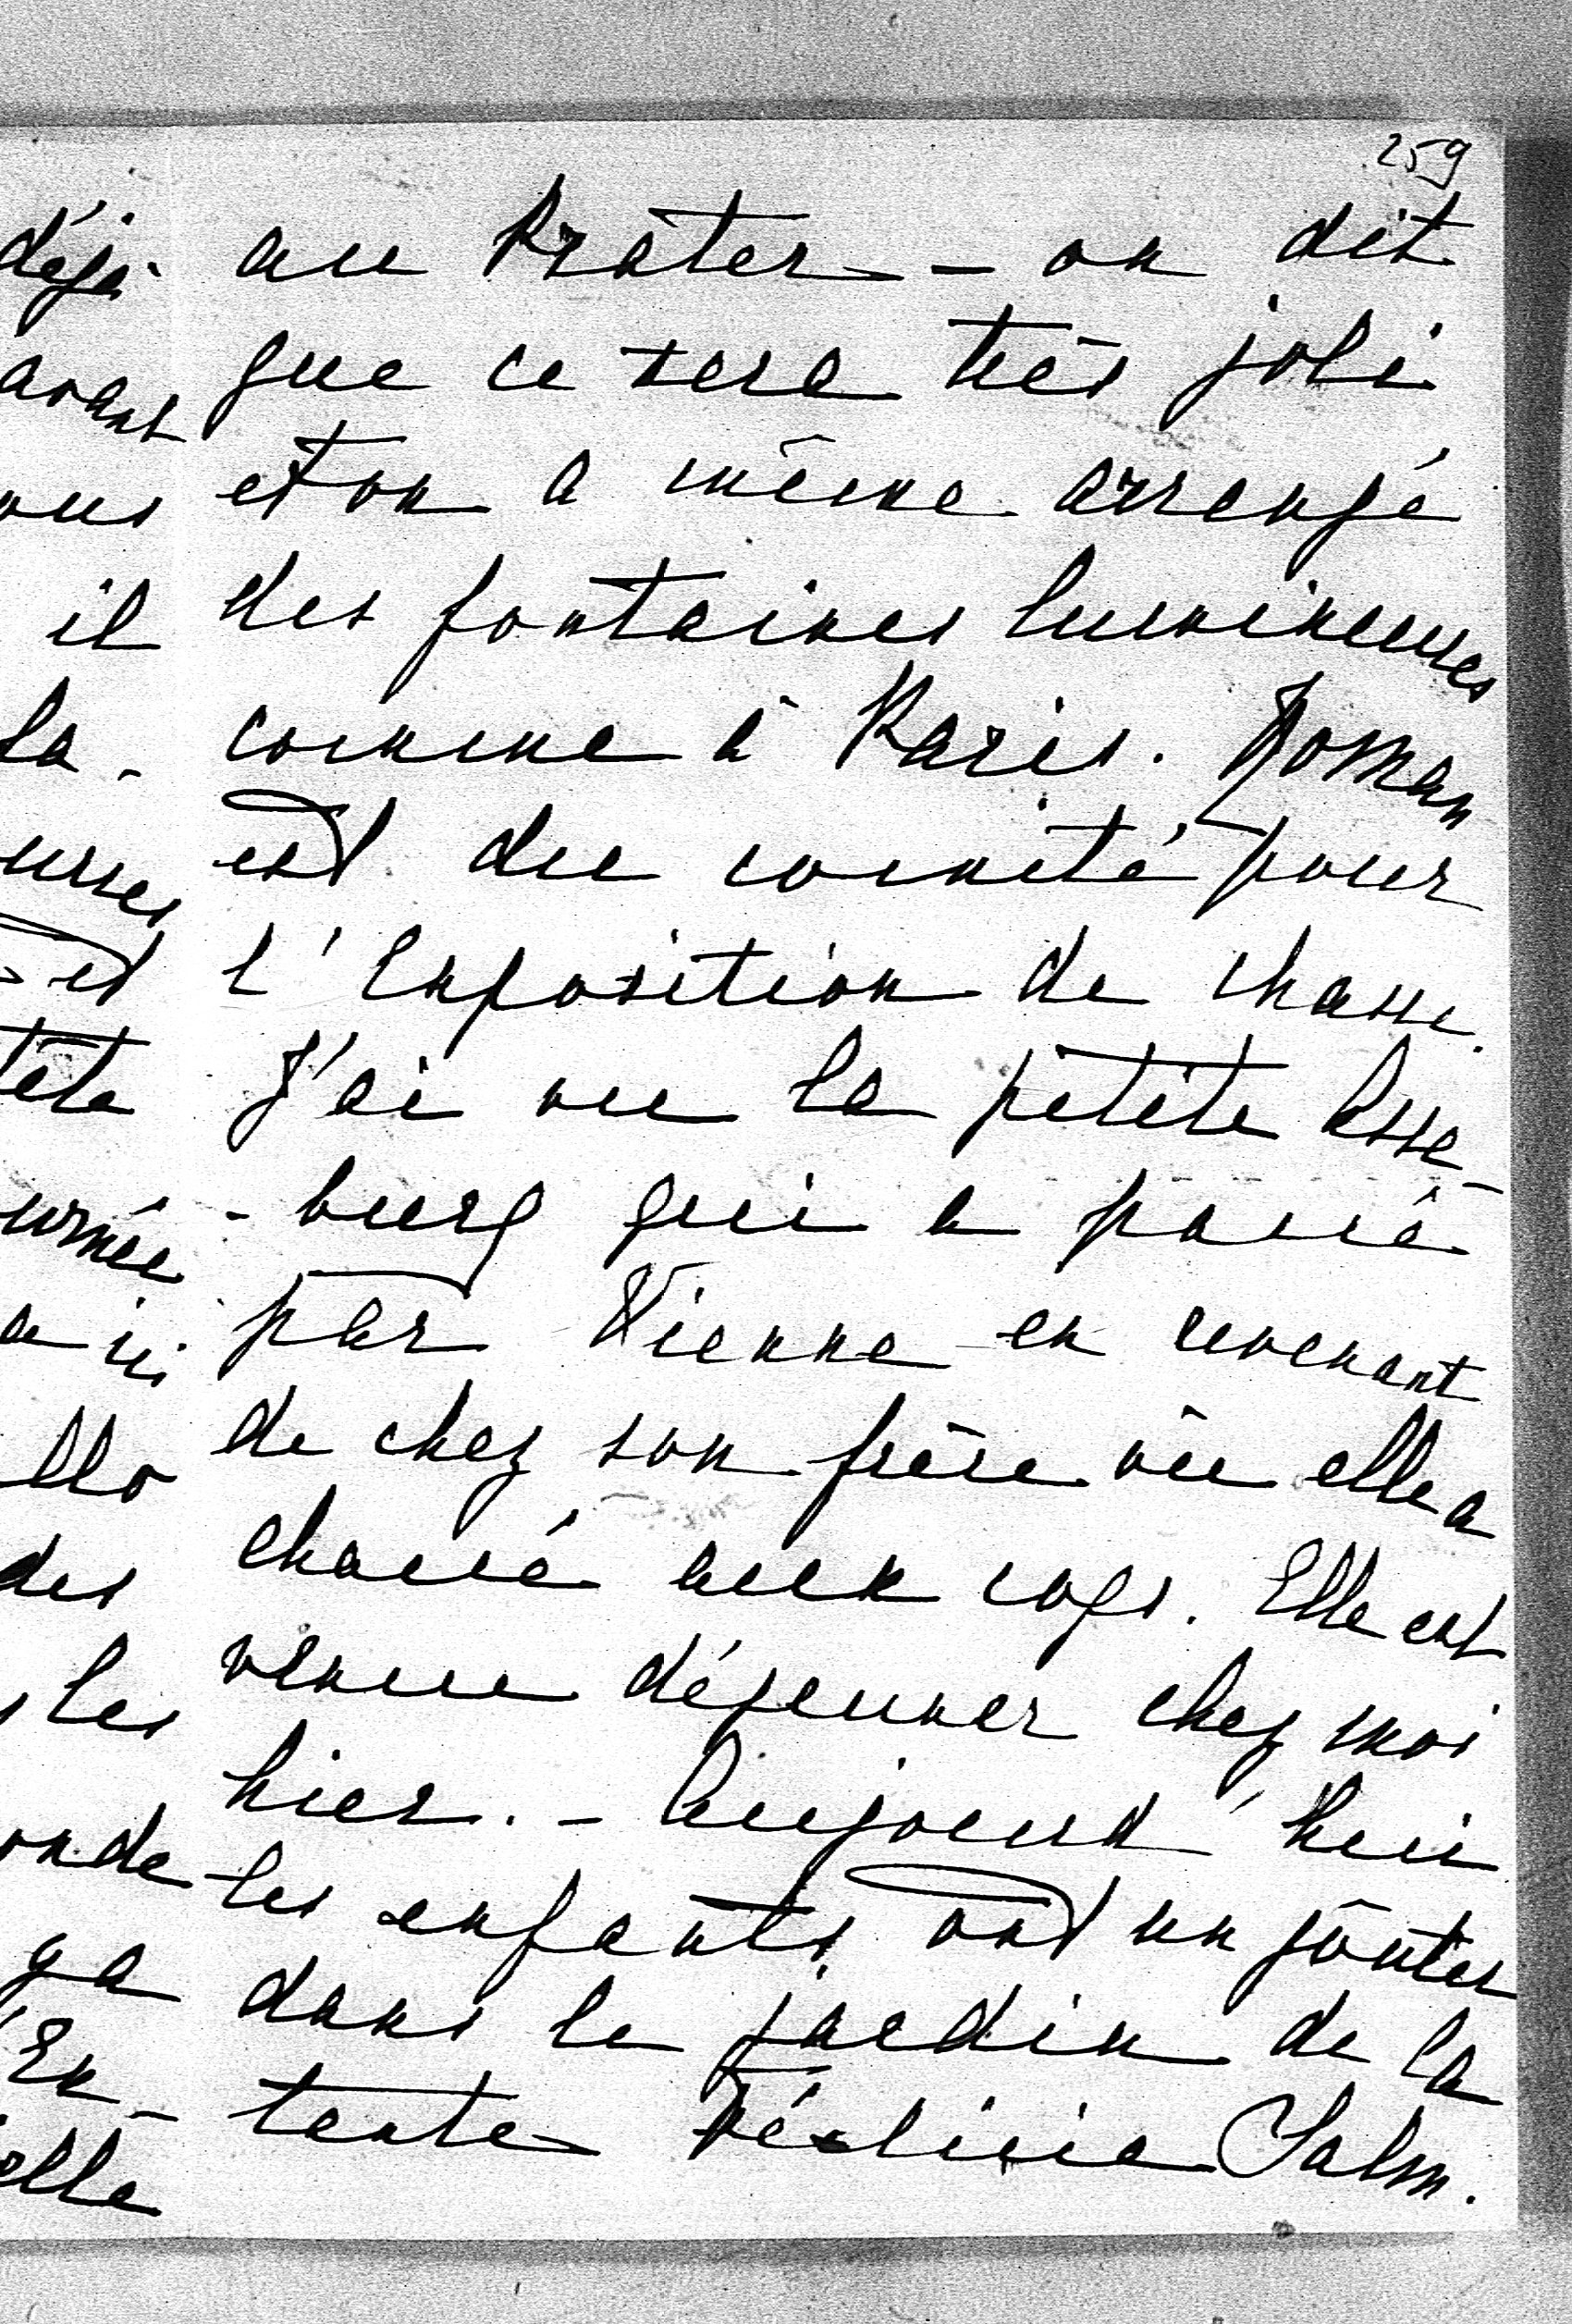 259
au Prater - on dit
que ce sera très joli
et on a même arrangé
des fontaines lumineuses
comme à Paris. Roman
est du comité pour
l'Exposition de chasse.
J'ai vu la petite Asse-
-burg qui a passé
par Vienne en revenant
de chez son frère où elle a
chassé aux coqs. Elle est
venue déjeuner chez moi
hier. - Aujourd'hui
les enfants ont un goûter
dans le jardin de la
tante Félicie Salm.
déjà
avant
ous
il
la -
urses
et
tête
urnée
a ici
llo
des
les
onde
ya
En-
elle